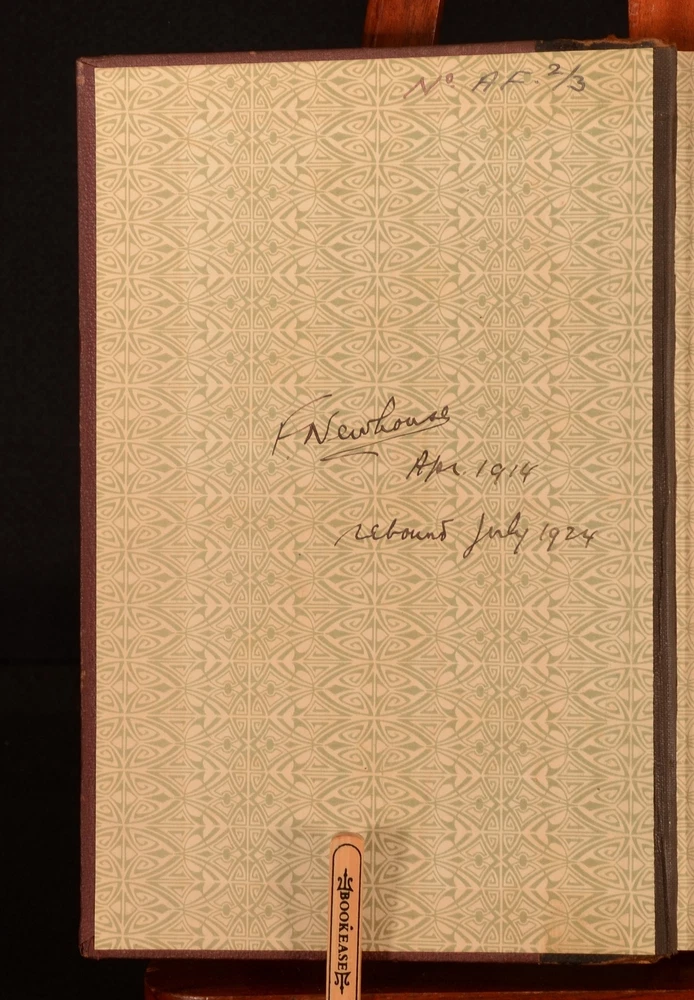 Nº AF. 2/3
F. Newhouse
Apr. 1914
rebound July 1924
BOOKEASE